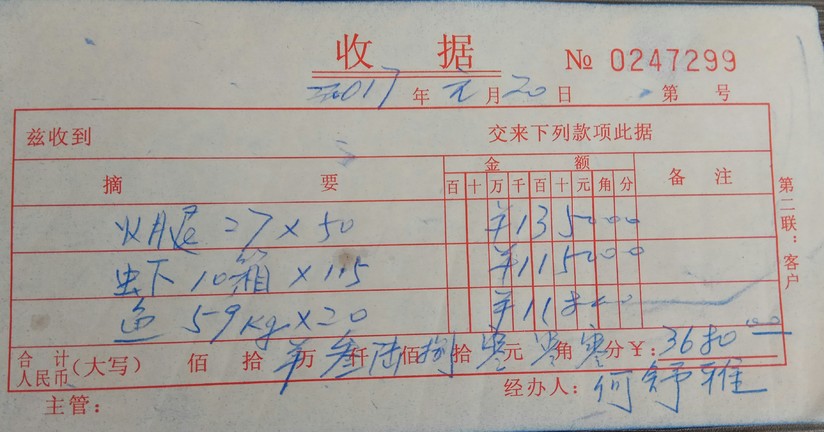 收 据 № 0247299
2017 年 元 月 20 日 第 号
兹收到 交来下列款项此据
摘 要 金 额 备 注
百 十 万 千 百 十 元 角 分
火腿 27 x 50 ¥135000
虾 10箱 x 115 ¥115000
鱼 59kg x 20 ¥118000
合计人民币(大写) 佰 拾 万 叁 仟 陆 佰 捌 拾 零 元 零 角 零 分 ¥: 3680.00
主管: 经办人: 何舒雅
第二联:客户